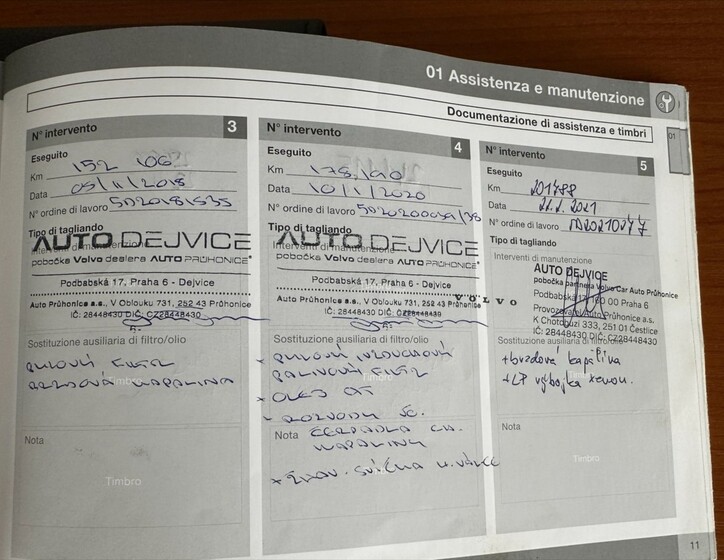 01 Assistenza e manutenzione
Documentazione di assistenza e timbri
01
N° intervento 3
Eseguito
Km 152 106
Data 05/11/2018
N° ordine di lavoro
Tipo di tagliando
AUTO DEJVICE
Interventi di manutenzione
pobočka Volvo dealera AUTO PRŮHONICE
Podbabská 17, Praha 6 - Dejvice
Auto Průhonice a.s., V Oblouku 731, 252 43 Průhonice
IČ: 28448430 DIČ: CZ28448430
Sostituzione ausiliaria di filtro/olio
pylový filtr
brzdová kapalina
Timbro
Nota
Timbro
N° intervento 4
Eseguito
Km
Data 10/1/2020
N° ordine di lavoro
Tipo di tagliando
AUTO DEJVICE
Interventi di manutenzione
pobočka Volvo dealera AUTO PRŮHONICE
Podbabská 17, Praha 6 - Dejvice
Auto Průhonice a.s., V Oblouku 731, 252 43 Průhonice
IČ: 28448430 DIČ: CZ28448430
Sostituzione ausiliaria di filtro/olio
palivový filtr
Timbro
olej AT
rozvody
Nota čerpadla
kapaliny
Timbro
N° intervento 5
Eseguito
Km 201788
Data 2021
N° ordine di lavoro
Tipo di tagliando
Interventi di manutenzione
AUTO DEJVICE
pobočka partnera Volvo Car Auto Průhonice
Podbabská 17, 160 00 Praha 6
VOLVO
Provozovatel Auto Průhonice a.s.
K Chotobuzi 333, 251 01 Čestlice
IČ: 28448430 DIČ: CZ28448430
Sostituzione ausiliaria di filtro/olio
+brzdová kapalina
+LP výbojka xenon.
Timbro
Nota
Timbro
11